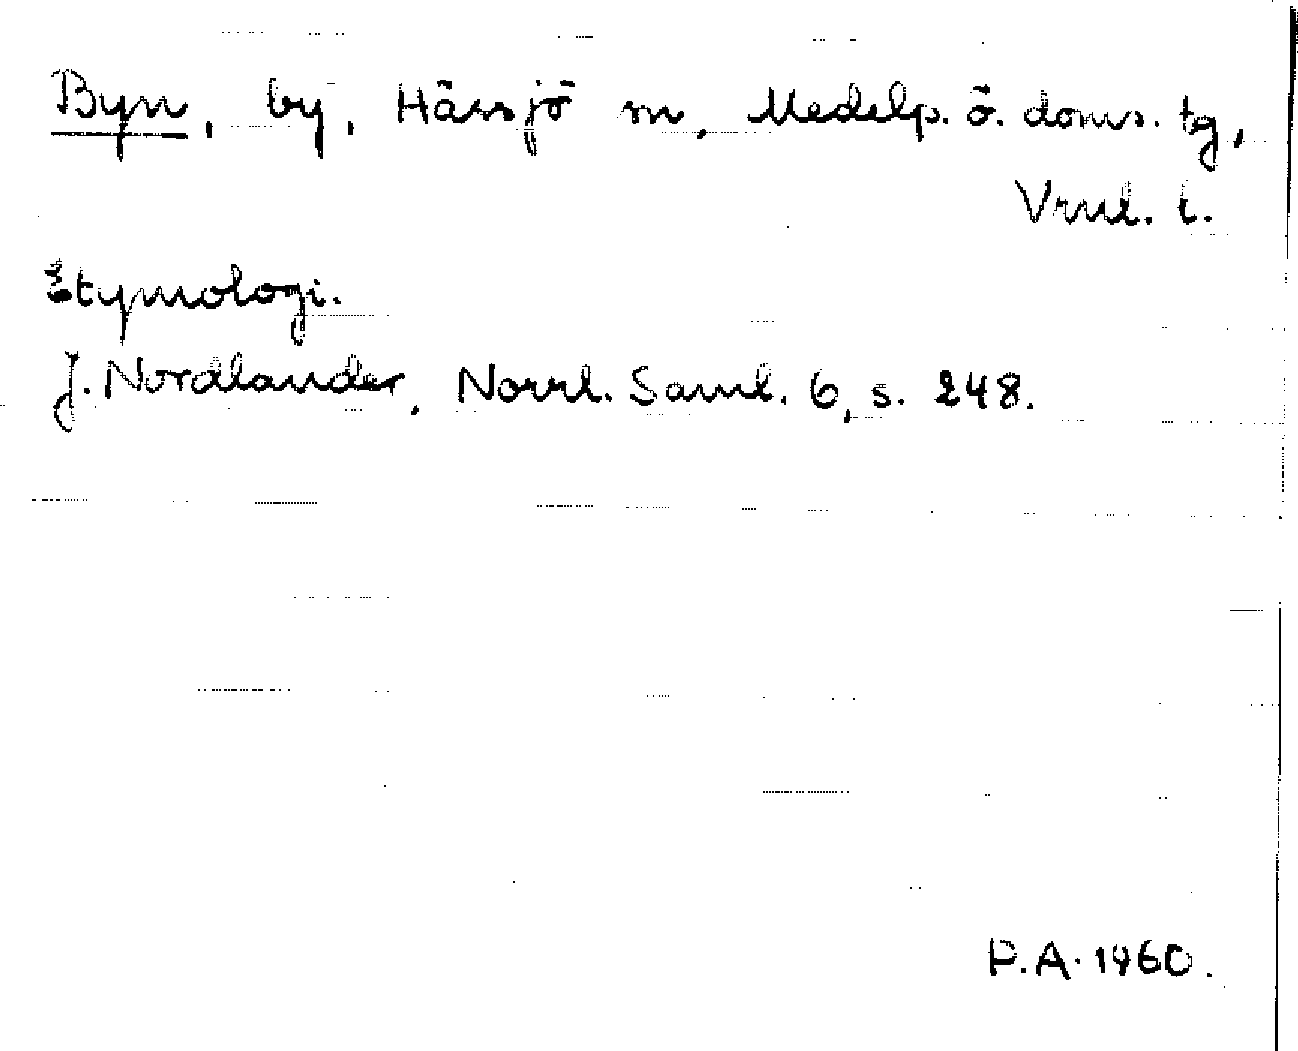 Byn, by, Hässjö sn, Medelp. ö. doms. tg,
Vrnl. l.
Etymologi.
J. Nordlander, Norrl. Saml. 6, s. 248.
P.A. 1960.